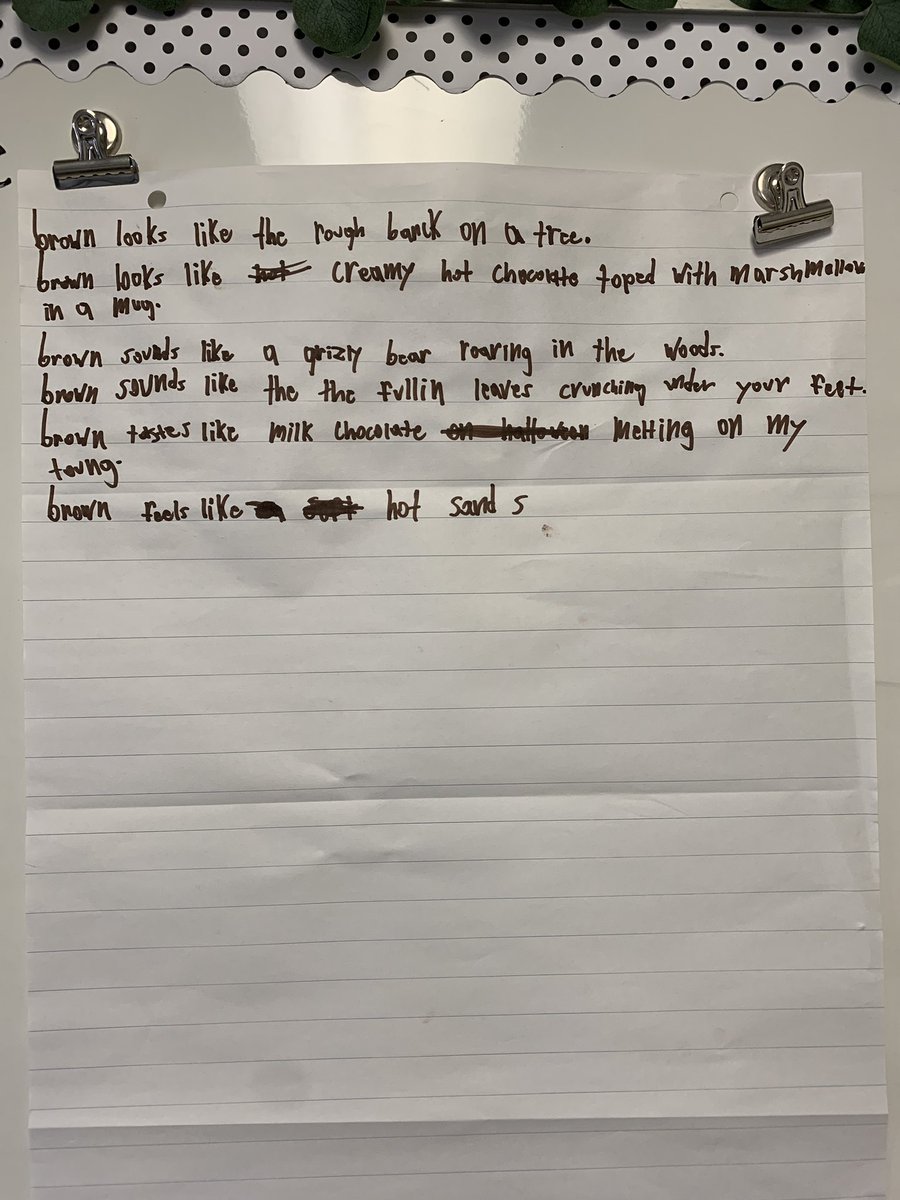 brown looks like the rough barck on a tree.
brown looks like hot creamy hot chocolate toped with Marshmallow
in a mug.
brown sounds like a grizly bear roaring in the woods.
brown sounds like the the fullin leaves crunching under your feet.
brown tastes like milk chocolate on halloween Melting on my
toung.
brown feels like hot sand s